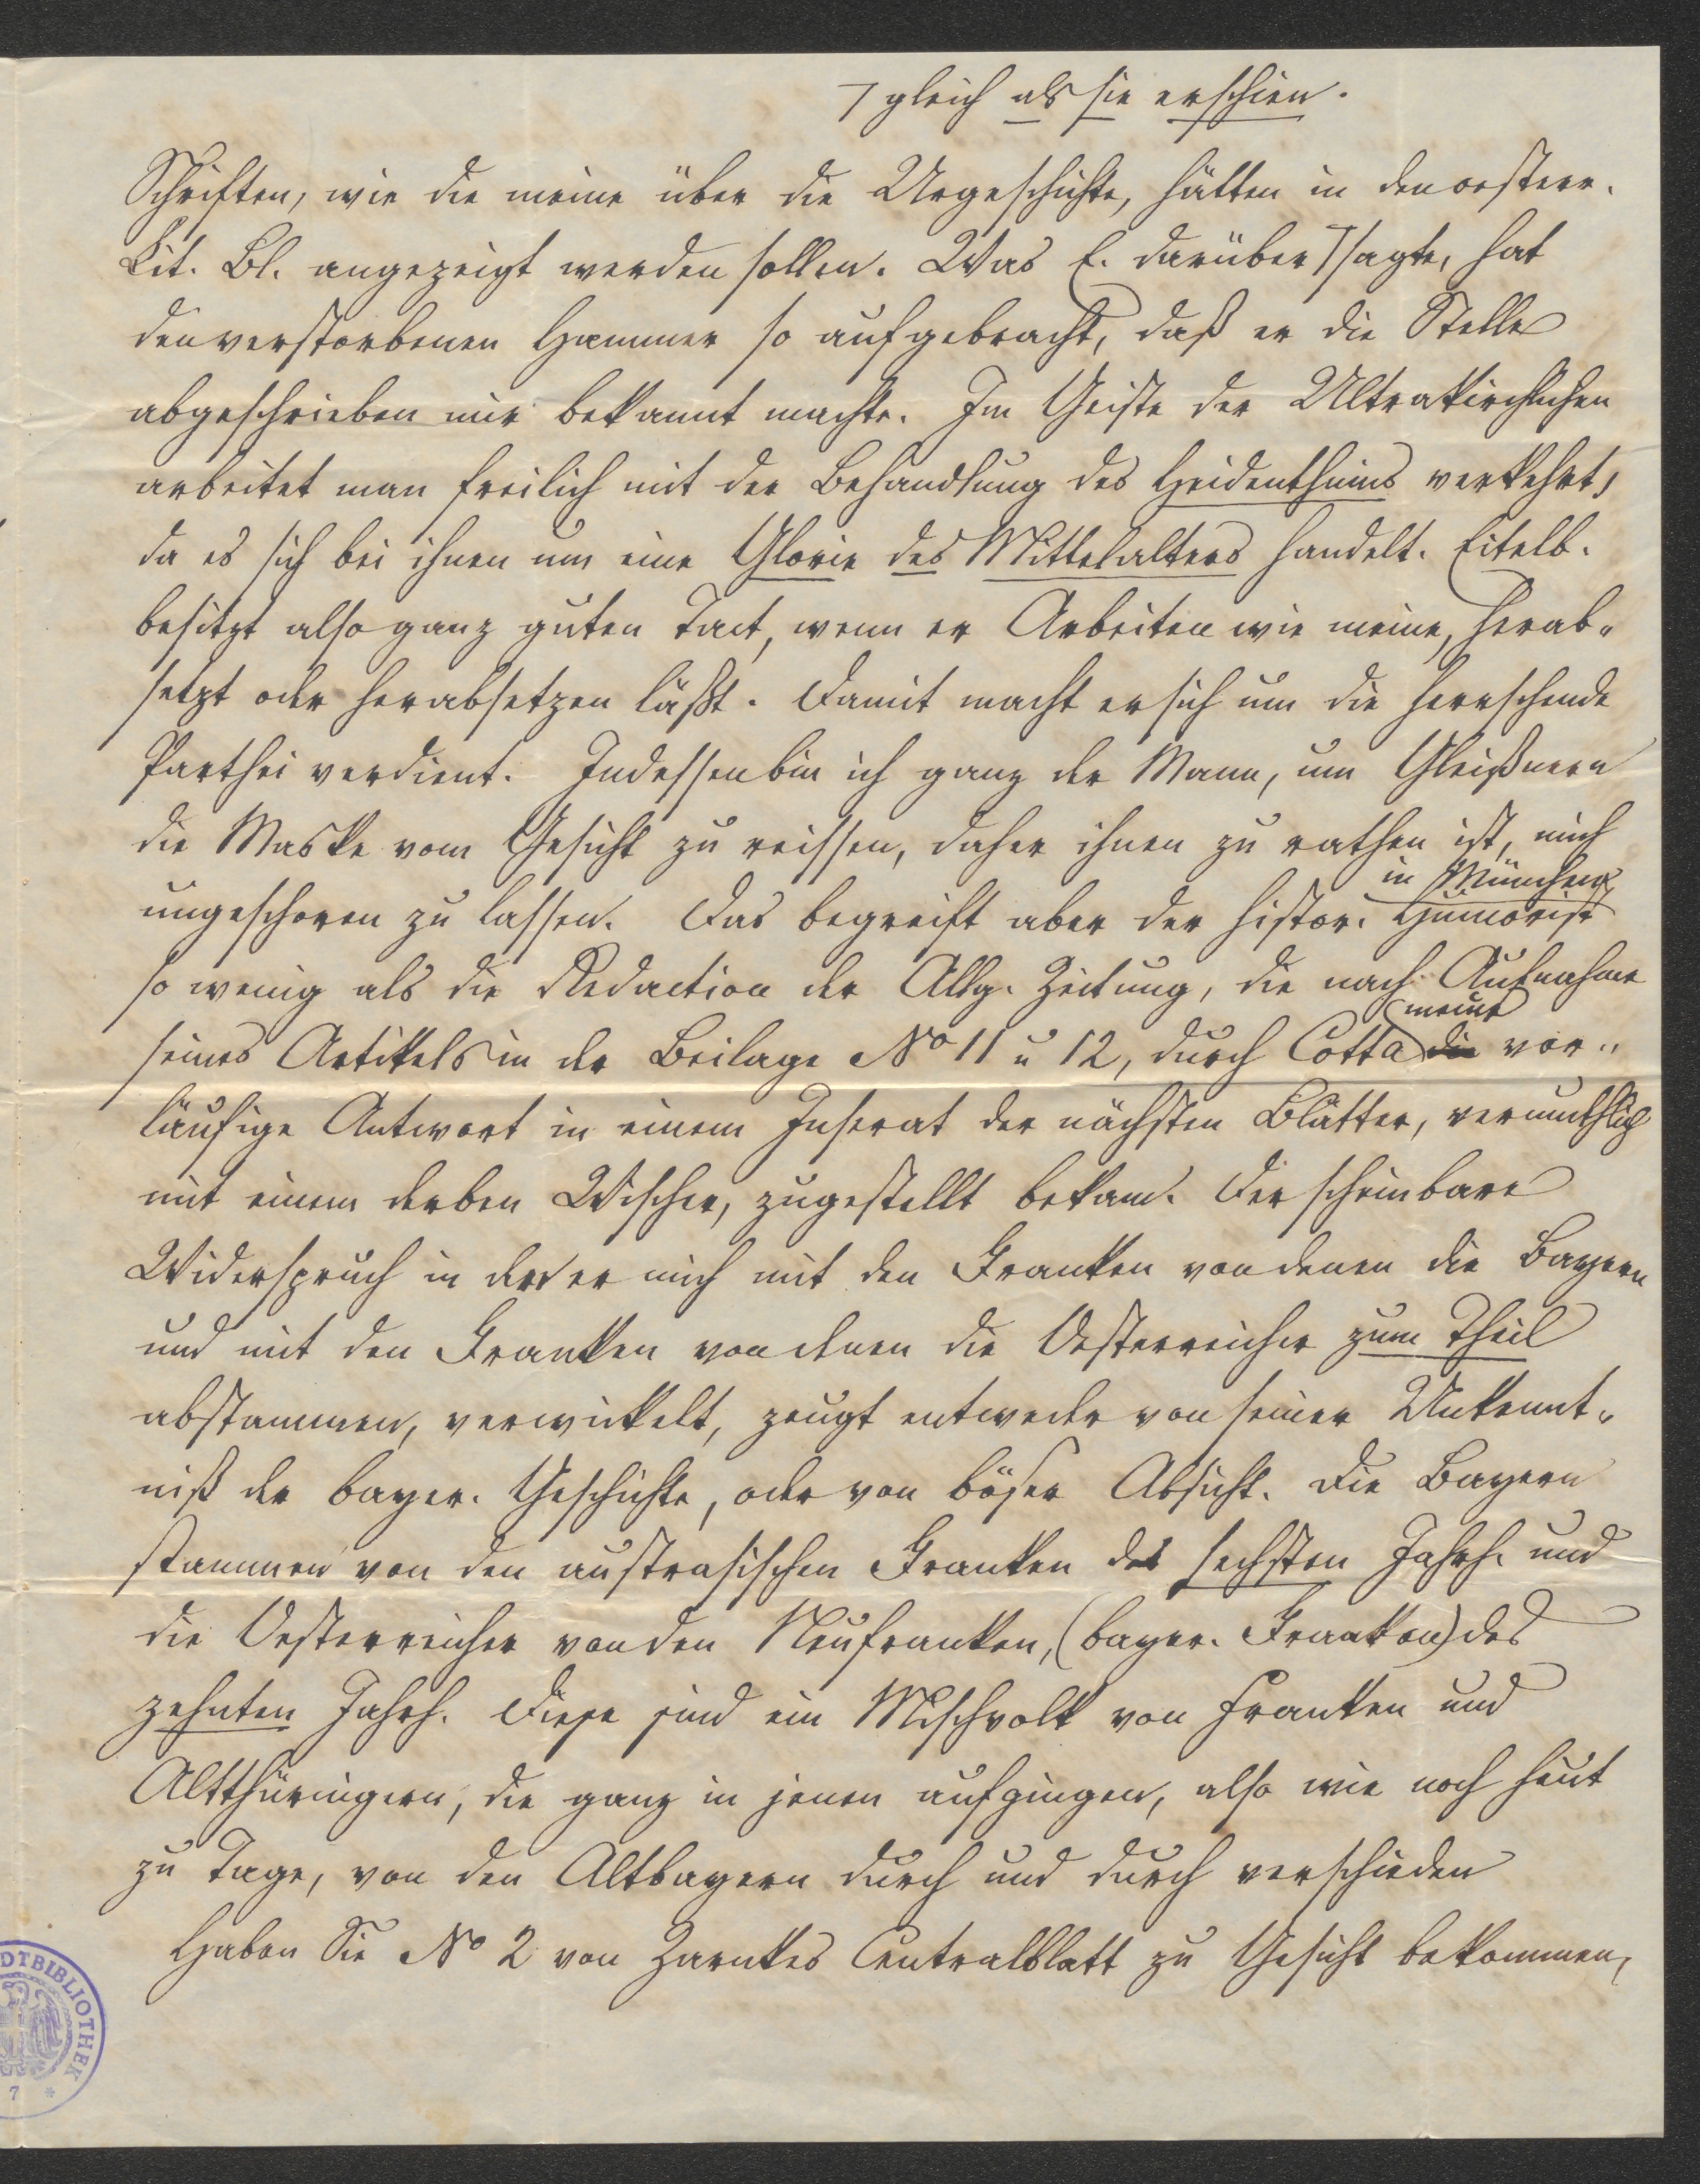 ⌐ gleich als sie erschien.
Schriften, wie die meine über die Urgeschichte, hätten in den oesterr.
Lit. Bl. angezeigt werden sollen. Was E. darüber ⌐ sagte, hat
den verstorbenen Hammer so aufgebracht, daß er die Stelle
abgeschrieben mir bekannt machte. Im Geiste der Ultrakirchlichen
arbeitet man freilich mit der Behandlung des Heidenthums verkehrt,
da es sich bei ihnen um eine Glorie des Mittelalters handelt. Eitelb.
besitzt also ganz guten Tact, wenn er Arbeiten wie meine, herab-
setzt oder herabsetzen läßt. Damit macht er sich um die herrschende
Parthei verdient. Indessen bin ich ganz der Mann, um Gleißnern
die Maske vom Gesicht zu reissen, daher ihnen zu rathen ist, mich
in München
ungeschoren zu lassen. Das begreift aber der histor. Humorist
so wenig als die Redaction der Allg. Zeitung, die nach Aufnahme
meine
seines Artikels in der Beilage No 11 u 12, durch Cotta die vor-
läufige Antwort in einem Inserat der nächsten Blätter, vermuthlich
mit einem derben Wischer, zugestellt bekam. Der scheinbare
Widerspruch in den er mich mit den Franken von denen die Bayern
und mit den Franken von denen die Oesterreicher zum Theil
abstammen, verwickelt, zeugt entweder von seiner Unkennt-
niß der bayer. Geschichte, oder von böser Absicht. Die Bayern
stammen von den austrasischen Franken des sechsten Jahrh. und
die Oesterreicher von den Neufranken, (bayer. Franken) des
zehnten Jahrh. Diese sind ein Mischvolk von Franken und
Altthüringern, die ganz in jenen aufgingen, also wie noch heut
zu Tage, von den Altbayern durch und durch verschieden
Haben Sie No 2 von Zarnkes Centralblatt zu Gesicht bekommen,
DTBIBLIOTHEK
7 *